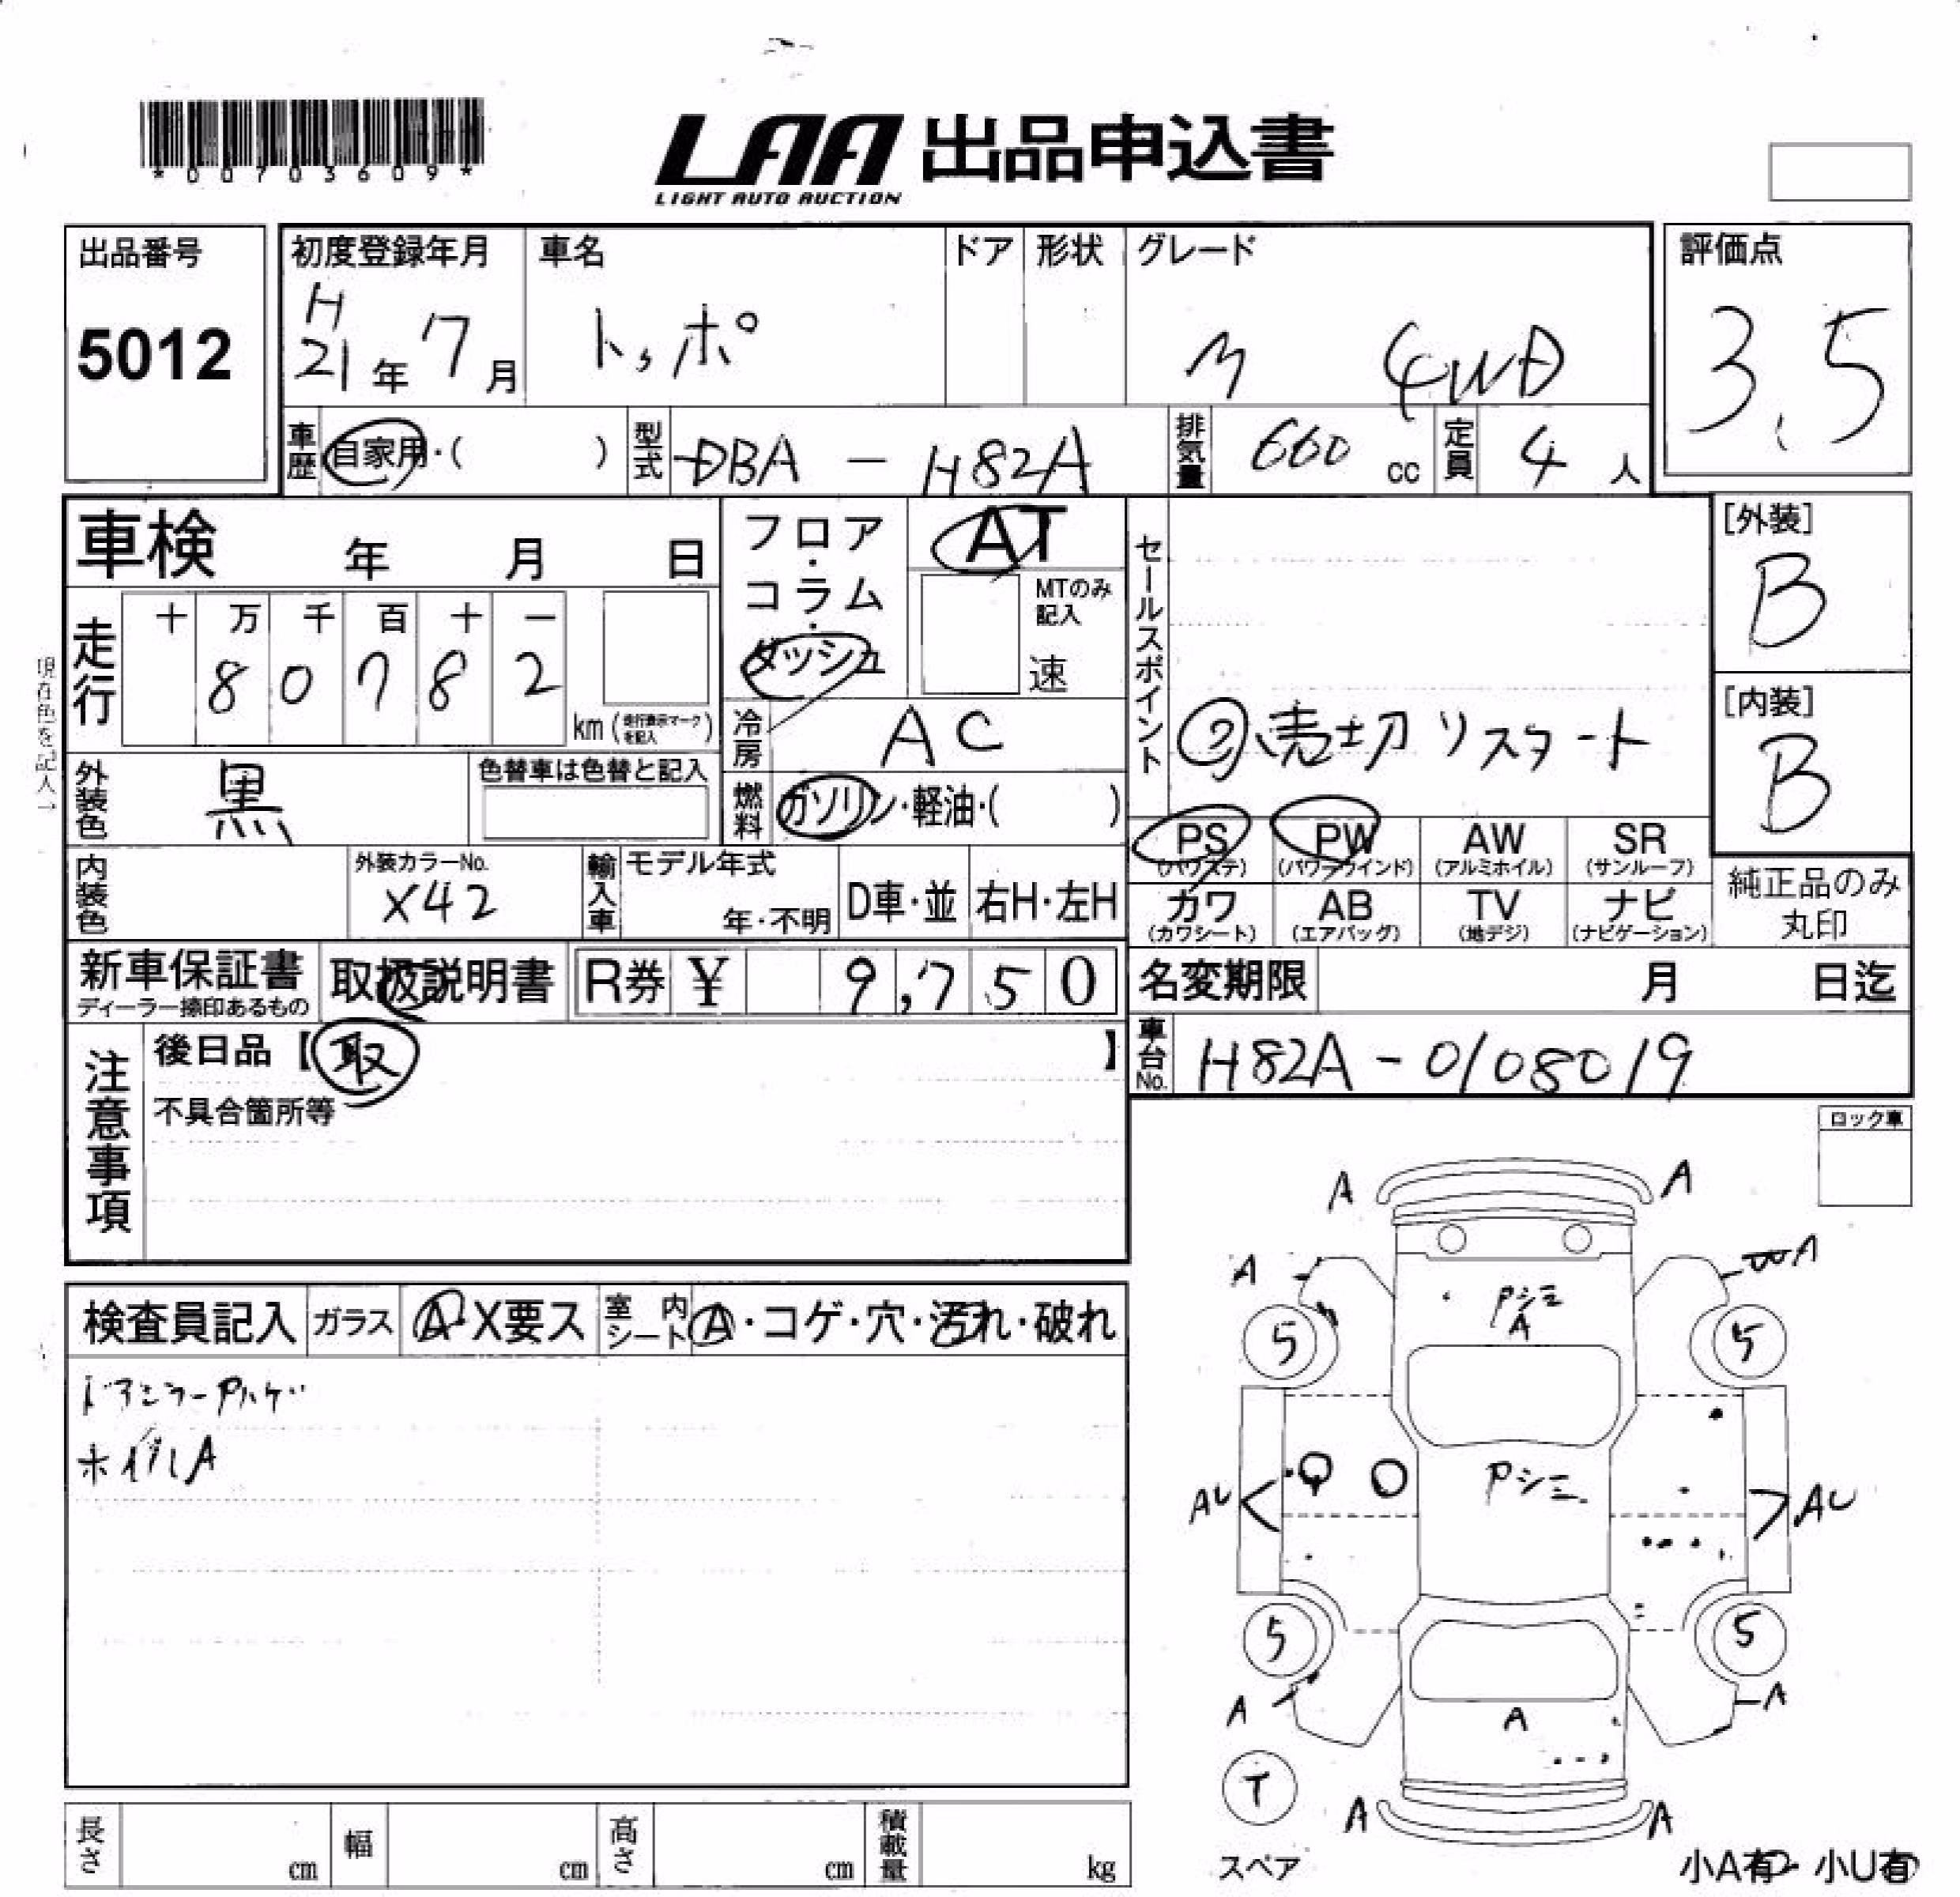 *00703609*
LAA 出品申込書
LIGHT AUTO AUCTION
出品番号
5012
初度登録年月
H
21年 7月
車名
トッポ
ドア
形状
グレード
M 4WD
評価点
3.5
車歴
自家用・( )
型式
DBA - H82A
排気量
660 cc
定員
4 人
車検 年 月 日
フロア・コラム・ダッシュ
AT
MTのみ記入
速
走行
十 万 千 百 十 一
8 0 7 8 2
km (走行表示マークを記入)
現在色を記入→
冷房
AC
外装色
黒
色替車は色替と記入
燃料
ガソリン・軽油・( )
内装色
外装カラーNo.
X42
輸入車
モデル年式
年・不明
D車・並
右H・左H
セールスポイント
売切りスタート
[外装]
B
[内装]
B
PS (パワステ)
PW (パワーウインド)
AW (アルミホイル)
SR (サンルーフ)
カワ (カワシート)
AB (エアバッグ)
TV (地デジ)
ナビ (ナビゲーション)
純正品のみ
丸印
新車保証書
ディーラー捺印あるもの
取扱説明書
R券 ¥ 9,750
名変期限 月 日迄
車台No.
H82A - 0108019
注意事項
後日品【取 】
不具合箇所等
ロック車
検査員記入
ガラス
A X要ス
室内シート
A・コゲ・穴・汚れ・破れ
ドアミラーPハゲ
ホイルA
A A
A A
Pシミ
A
5 5
Pシミ
AU AU
5 5
A A
A
T
スペア
A A
小A有・小U有
長さ cm
幅 cm
高さ cm
積載量 kg